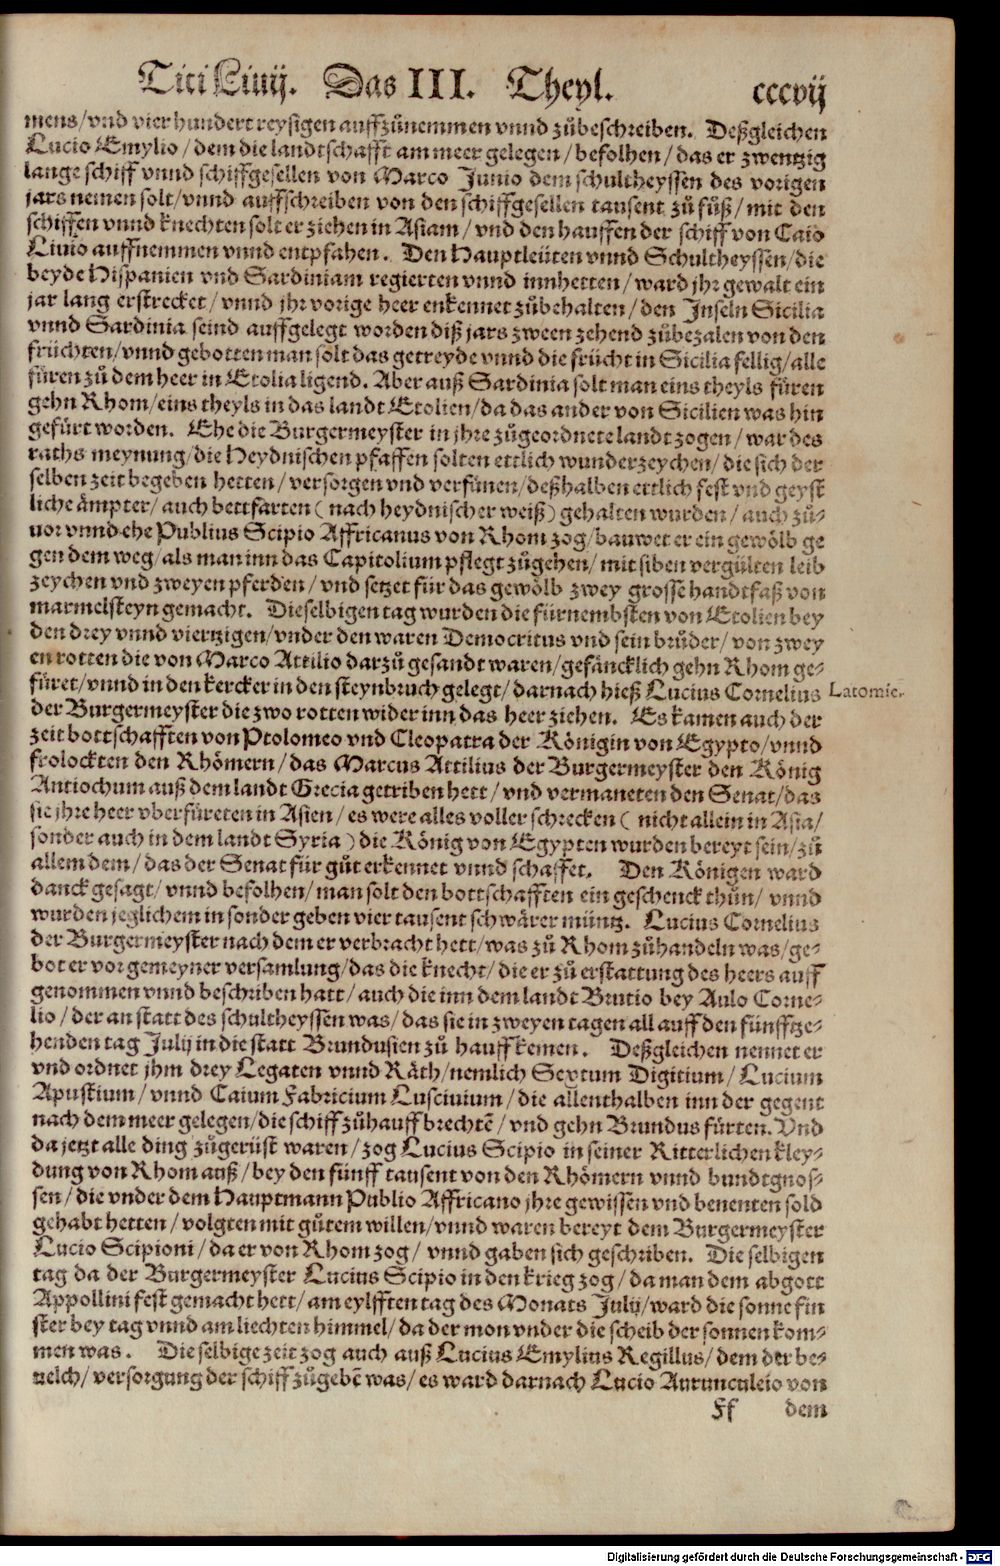 Titi Liuij. Das III. Theyl. cccvij
mens/vnd vier hundert reysigen auffzůnemmen vnnd zůbeschreiben. Deßgleichen
Lucio Emylio/dem die landtschafft am meer gelegen/befolhen/das er zwentzig
lange schiff vnnd schiffgesellen von Marco Junio dem schultheyssen des vorigen
jars nemen solt/vnnd auffschreiben von den schiffgesellen tausent zů fůß/mit den
schiffen vnnd knechten solt er ziehen in Asiam/vnd den hauffen der schiff von Caio
Liuio auffnemmen vnnd entpfahen. Den Hauptleüten vnnd Schultheyssen/die
beyde Hispanien vnd Sardiniam regierten vnnd innhetten/ward jhr gewalt ein
jar lang erstrecket/vnnd jhr vorige heer enkennet zůbehalten/den Inseln Sicilia
vnnd Sardinia seind auffgelegt worden diß jars zween zehend zůbezalen von den
früchten/vnnd gebotten man solt das getreyde vnnd die frücht in Sicilia fellig/alle
füren zů dem heer in Etolia ligend. Aber auß Sardinia solt man eins theyls füren
gehn Rhom/eins theyls in das landt Etolien/da das ander von Sicilien was hin
gefürt worden. Ehe die Burgermeyster in jhre zůgeordnete landt zogen/war des
raths meynung/die Heydnischen pfaffen solten ettlich wunderzeychen/die sich der
selben zeit begeben hetten/versorgen vnd versünen/deßhalben ettlich fest vnd geyst
liche ämpter/auch bettfarten (nach heydnischer weiß) gehalten wurden/auch zů-
uor vnnd ehe Publius Scipio Affricanus von Rhom zog/bauwet er ein gewölb ge
gen dem weg/als man inn das Capitolium pflegt zůgehen/mit siben vergülten leib
zeychen vnd zweyen pferden/vnd setzet für das gewölb zwey grosse handtfaß von
marmelsteyn gemacht. Dieselbigen tag wurden die fürnembsten von Etolien bey
den drey vnnd viertzigen/vnder den waren Democritus vnd sein brůder/von zwey
en rotten die von Marco Attilio darzů gesandt waren/gefäncklich gehn Rhom ge-
füret/vnnd in den kercker in den steynbruch gelegt/darnach hieß Lucius Cornelius Latomie.
der Burgermeyster die zwo rotten wider inn das heer ziehen. Es kamen auch der
zeit bottschafften von Ptolomeo vnd Cleopatra der Königin von Egypto/vnnd
frolockten den Rhömern/das Marcus Attilius der Burgermeyster den König
Antiochum auß dem landt Grecia getriben hett/vnd vermaneten den Senat/das
sie jhre heer vberfüreten in Asien/es were alles voller schrecken (nicht allein in Asia/
sonder auch in dem landt Syria) die König von Egypten wurden bereyt sein/zů
allem dem/das der Senat für gůt erkennet vnnd schaffet. Den Königen ward
danck gesagt/vnnd befolhen/man solt den bottschafften ein geschenck thůn/vnnd
wurden jeglichem in sonder geben vier tausent schwärer müntz. Lucius Cornelius
der Burgermeyster nach dem er verbracht hett/was zů Rhom zůhandeln was/ge-
bot er vor gemeyner versamlung/das die knecht/die er zů erstattung des heers auff
genommen vnnd beschriben hatt/auch die inn dem landt Brutio bey Aulo Corne-
lio/der an statt des schultheyssen was/das sie in zweyen tagen all auff den fünfftze-
henden tag Julij in die statt Brundusien zů hauff kemen. Deßgleichen nennet er
vnd ordnet jhm drey Legaten vnnd Räth/nemlich Sextum Digitium/Lucium
Apustium/vnnd Caium Fabricium Luscinium/die allenthalben inn der gegent
nach dem meer gelegen/die schiff zůhauff brechtē/vnd gehn Brundus fürten. Vnd
da jetzt alle ding zůgerüst waren/zog Lucius Scipio in seiner Ritterlichen kley-
dung von Rhom auß/bey den fünff tausent von den Rhömern vnnd bundtgnos-
sen/die vnder dem Hauptmann Publio Affricano jhre gewissen vnd benenten sold
gehabt hetten/volgten mit gůtem willen/vnnd waren bereyt dem Burgermeyster
Lucio Scipioni/da er von Rhom zog/vnnd gaben sich geschriben. Die selbigen
tag da der Burgermeyster Lucius Scipio in den krieg zog/da man dem abgott
Appollini fest gemacht hett/am eylfften tag des Monats Julij/ward die sonne fin
ster bey tag vnnd am liechten himmel/da der mon vnder die scheib der sonnen kom-
men was. Die selbige zeit zog auch auß Lucius Emylius Regillus/dem der be-
uelch/versorgung der schiff zůgebē was/es ward darnach Lucio Aurunculeio von
Ff dem
Digitalisierung gefördert durch die Deutsche Forschungsgemeinschaft - DFG